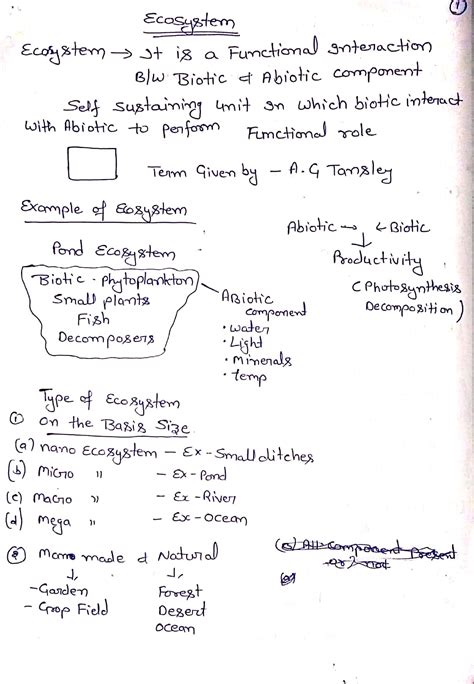 1
Ecosystem
Ecosystem → It is a Functional Interaction
B/W Biotic & Abiotic component
Self sustaining unit In which biotic interact
with Abiotic to perform Functional role
Term Given by - A.G Tansley
Example of Ecosystem
Abiotic → ← Biotic
↓
Productivity
(Photosynthesis
Decomposition)
Pond Ecosystem
Biotic - Phytoplankton
Small plants
Fish
Decomposers
Abiotic
component
• water
• Light
• Minerals
• temp
Type of Ecosystem
① On the Basis Size
(a) nano Ecosystem - Ex - Small ditches
(b) Micro " - Ex - Pond
(c) Macro " - Ex - River
(d) Mega " - Ex - Ocean
② Man made & Natural
↓ ↓
- Garden Forest
- Crop Field Desert
Ocean
(c) All component Present
or not